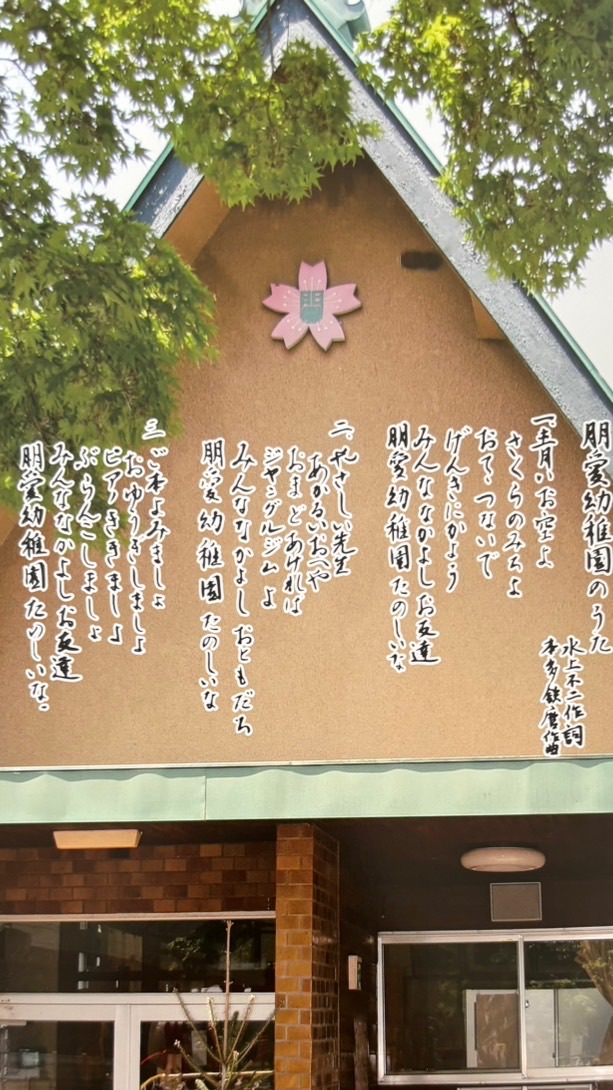 朋愛幼稚園のうた
水上不二作詞
本多鉄麿作曲
一、青いお空よ
さくらのみちよ
おてゝつないで
げんきにかよう
みんななかよしお友達
朋愛幼稚園たのしいな
二、やさしい先生
あかるいおへや
おまどあければ
ジャングルジムよ
みんななかよしおともだち
朋愛幼稚園たのしいな
三、ご本よみましょ
おゆうぎしましょ
ピアノききましょ
ぶらんこしましょ
みんななかよしお友達
朋愛幼稚園たのしいな。